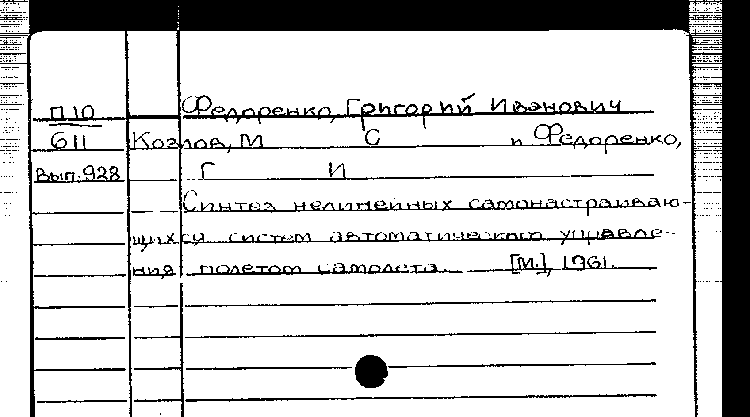 П10 Федоренко, Григорий Иванович
611 Козлов, М С и Федоренко,
Вып. 928 Г И
Синтез нелинейных самонастраиваю-
щихся систем автоматического управле-
ния полетом самолета. [М.], 1961.